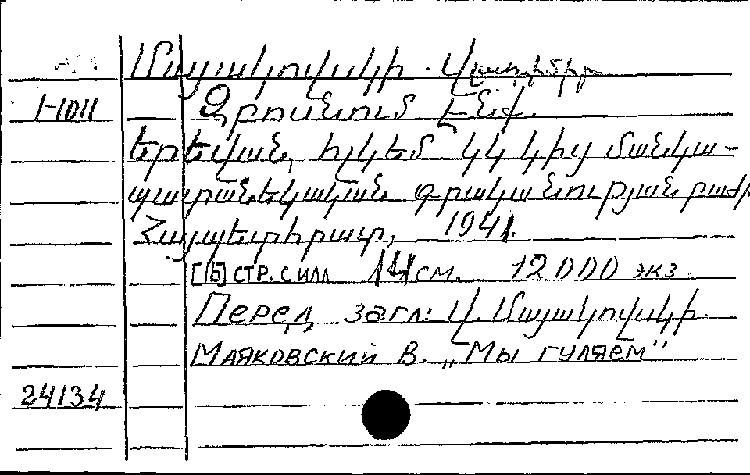 Մայակովսկի. Վլադիմիր
1-1011 Զբոսնում ենք.
Երեվան, ՀԼԿԵՄ ԿԿ կից մանկա-
պատանեկական գրականության բաժ.
Հայպետհրատ, 1941.
[16] СТР. С ИЛЛ 14 см. 12000 экз.
Перед загл: Վ. Մայակովսկի.
Маяковский В. „Мы гуляем"
24134